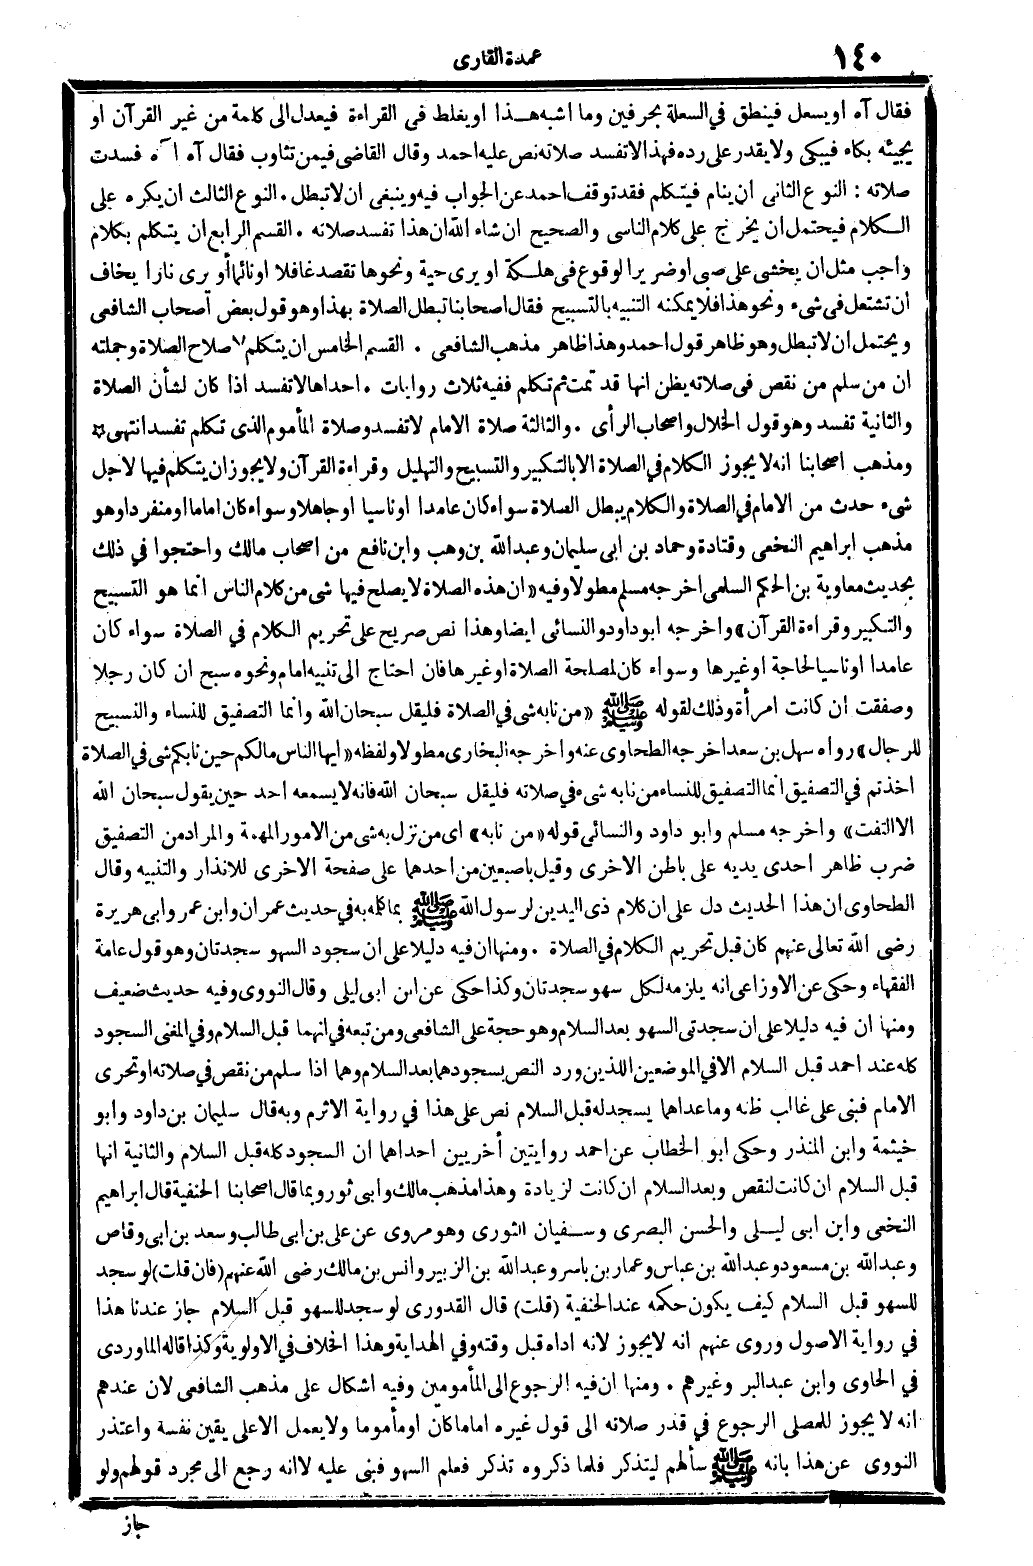 ١٤٠
عمدة القارى
فقال آه او يسعل فينطق في السعلة بحرفين وما اشبه هـذا او يغلط في القراءة فيعدل الى كلمة من غير القرآن او
يجيئه بكاء فيبكى ولا يقدر على رده فهذا لاتفسد صلاته نص عليه احمد وقال القاضى فيمن تثاوب فقال آه آه فسدت
صلاته : النوع الثانى ان ينام فيتكلم فقد توقف احمد عن الجواب فيه وينبغى ان لا تبطل . النوع الثالث ان يكره على
الـكلام فيحتمل ان يخرج على كلام الناسى والصحيح ان شاء الله ان هذا تفسد صلاته . القسم الرابع ان يتكلم بكلام
واجب مثل ان يخشى على صبى او ضرير الوقوع فى هلكة او يرى حية ونحوها تقصد غافلا او نائما أو يرى نارا يخاف
ان تشتعل فى شىء ونحو هذا فلا يمكنه التنبيه بالتسبيح فقال اصحابنا تبطل الصلاة بهذا وهو قول بعض أصحاب الشافعى
ويحتمل ان لاتبطل وهو ظاهر قول احمد وهذا ظاهر مذهب الشافعى . القسم الخامس ان يتكلم لاصلاح الصلاة وجملته
ان من سلم من نقص فى صلاته يظن انها قد تمت ثم تكلم ففيه ثلاث روايات . احداها لاتفسد اذا كان لشأن الصلاة
والثانية تفسد وهو قول الخلال واصحاب الرأى . والثالثة صلاة الامام لاتفسد وصلاة المأموم الذى تكلم تفسد انتهى ☆
ومذهب اصحابنا انه لايجوز الكلام في الصلاة الا بالتكبير والتسبيح والتهليل وقراءة القرآن ولا يجوز ان يتكلم فيها لاجل
شىء حدث من الامام في الصلاة والكلام يبطل الصلاة سواء كان عامدا اوناسيا او جاهلا وسواء كان اماما او منفردا وهو
مذهب ابراهيم النخعى وقتادة وحماد بن ابى سليمان وعبدالله بن وهب وابن نافع من اصحاب مالك واحتجوا في ذلك
بحديث معاوية بن الحكم السلمى اخرجه مسلم مطولا وفيه «ان هذه الصلاة لايصلح فيها شى من كلام الناس انما هو التسبيح
والتكبير وقراءة القرآن» واخرجه ابو داود والنسائى ايضا وهذا نص صريح على تحريم الكلام في الصلاة سواء كان
عامدا اوناسيا لحاجة اوغيرها وسواء كان لمصلحة الصلاة اوغيرها فان احتاج الى تنبيه امام ونحوه سبح ان كان رجلا
وصفقت ان كانت امرأة وذلك لقوله ﷺ «من نابه شى في الصلاة فليقل سبحان الله وانما التصفيق للنساء والتسبيح
للرجال» رواه سهل بن سعد اخرجه الطحاوى عنه واخرجه البخارى مطولا ولفظه «ايها الناس مالكم حين نابكم شى في الصلاة
اخذتم في التصفيق انما التصفيق للنساء من نابه شىء في صلاته فليقل سبحان الله فانه لا يسمعه احد حين يقول سبحان الله
الا التفت» واخرجه مسلم وابو داود والنسائى قوله «من نابه» اى من نزل به شى من الامور المهمة والمراد من التصفيق
ضرب ظاهر احدى يديه على باطن الاخرى وقيل باصبعين من احدهما على صفحة الاخرى للانذار والتنبيه وقال
الطحاوى ان هذا الحديث دل على ان كلام ذى اليدين لرسول الله ﷺ بما كلمه به في حديث عمران وابن عمر وابى هريرة
رضى الله تعالى عنهم كان قبل تحريم الكلام في الصلاة . ومنها ان فيه دليلا على ان سجود السهو سجدتان وهو قول عامة
الفقهاء وحكى عن الاوزاعى انه يلزمه لكل سهو سجدتان وكذا حكى عن ابن ابى ليلى وقال النووى وفيه حديث ضعيف
ومنها ان فيه دليلا على ان سجدتى السهو بعد السلام وهو حجة على الشافعى ومن تبعه في انهما قبل السلام وفي المغنى السجود
كله عند احمد قبل السلام الا في الموضعين اللذين ورد النص بسجودهما بعد السلام وهما اذا سلم من نقص في صلاته او تحرى
الامام فبنى على غالب ظنه وما عداهما يسجد له قبل السلام نص على هذا في رواية الاثرم وبه قال سليمان بن داود وابو
خيثمة وابن المنذر وحكى ابو الخطاب عن احمد روايتين أخريين احداهما ان السجود كله قبل السلام والثانية انها
قبل السلام ان كانت لنقص وبعد السلام ان كانت لزيادة وهذا مذهب مالك وابى ثور وبما قال اصحابنا الحنفية قال ابراهيم
النخعى وابن ابى ليـلى والحسن البصرى وسـفيان الثورى وهو مروى عن على بن ابى طالب وسعد بن ابى وقاص
وعبد الله بن مسعود وعبدالله بن عباس وعمار بن ياسر وعبدالله بن الزبير وانس بن مالك رضى الله عنهم (فان قلت) لو سجد
للسهو قبل السلام كيف يكون حكمه عند الحنفية (قلت) قال القدورى لو سجد للسهو قبل السلام جاز عندنا هذا
في رواية الاصول وروى عنهم انه لايجوز لانه اداه قبل وقته وفي الهداية وهذا الخلاف في الاولوية وكذا قاله الماوردى
في الحاوى وابن عبدالبر وغيرهم . ومنها ان فيه الرجوع الى المأمومين وفيه اشكال على مذهب الشافعى لان عندهم
انه لايجوز للمصلى الرجوع في قدر صلاته الى قول غيره اماما كان او مأموما ولا يعمل الا على يقين نفسه واعتذر
النووى عن هذا بانه ﷺ سألهم ليتذكر فلما ذكروه تذكر فعلم السهو فبنى عليه لا انه رجع الى مجرد قولهم ولو
جاز